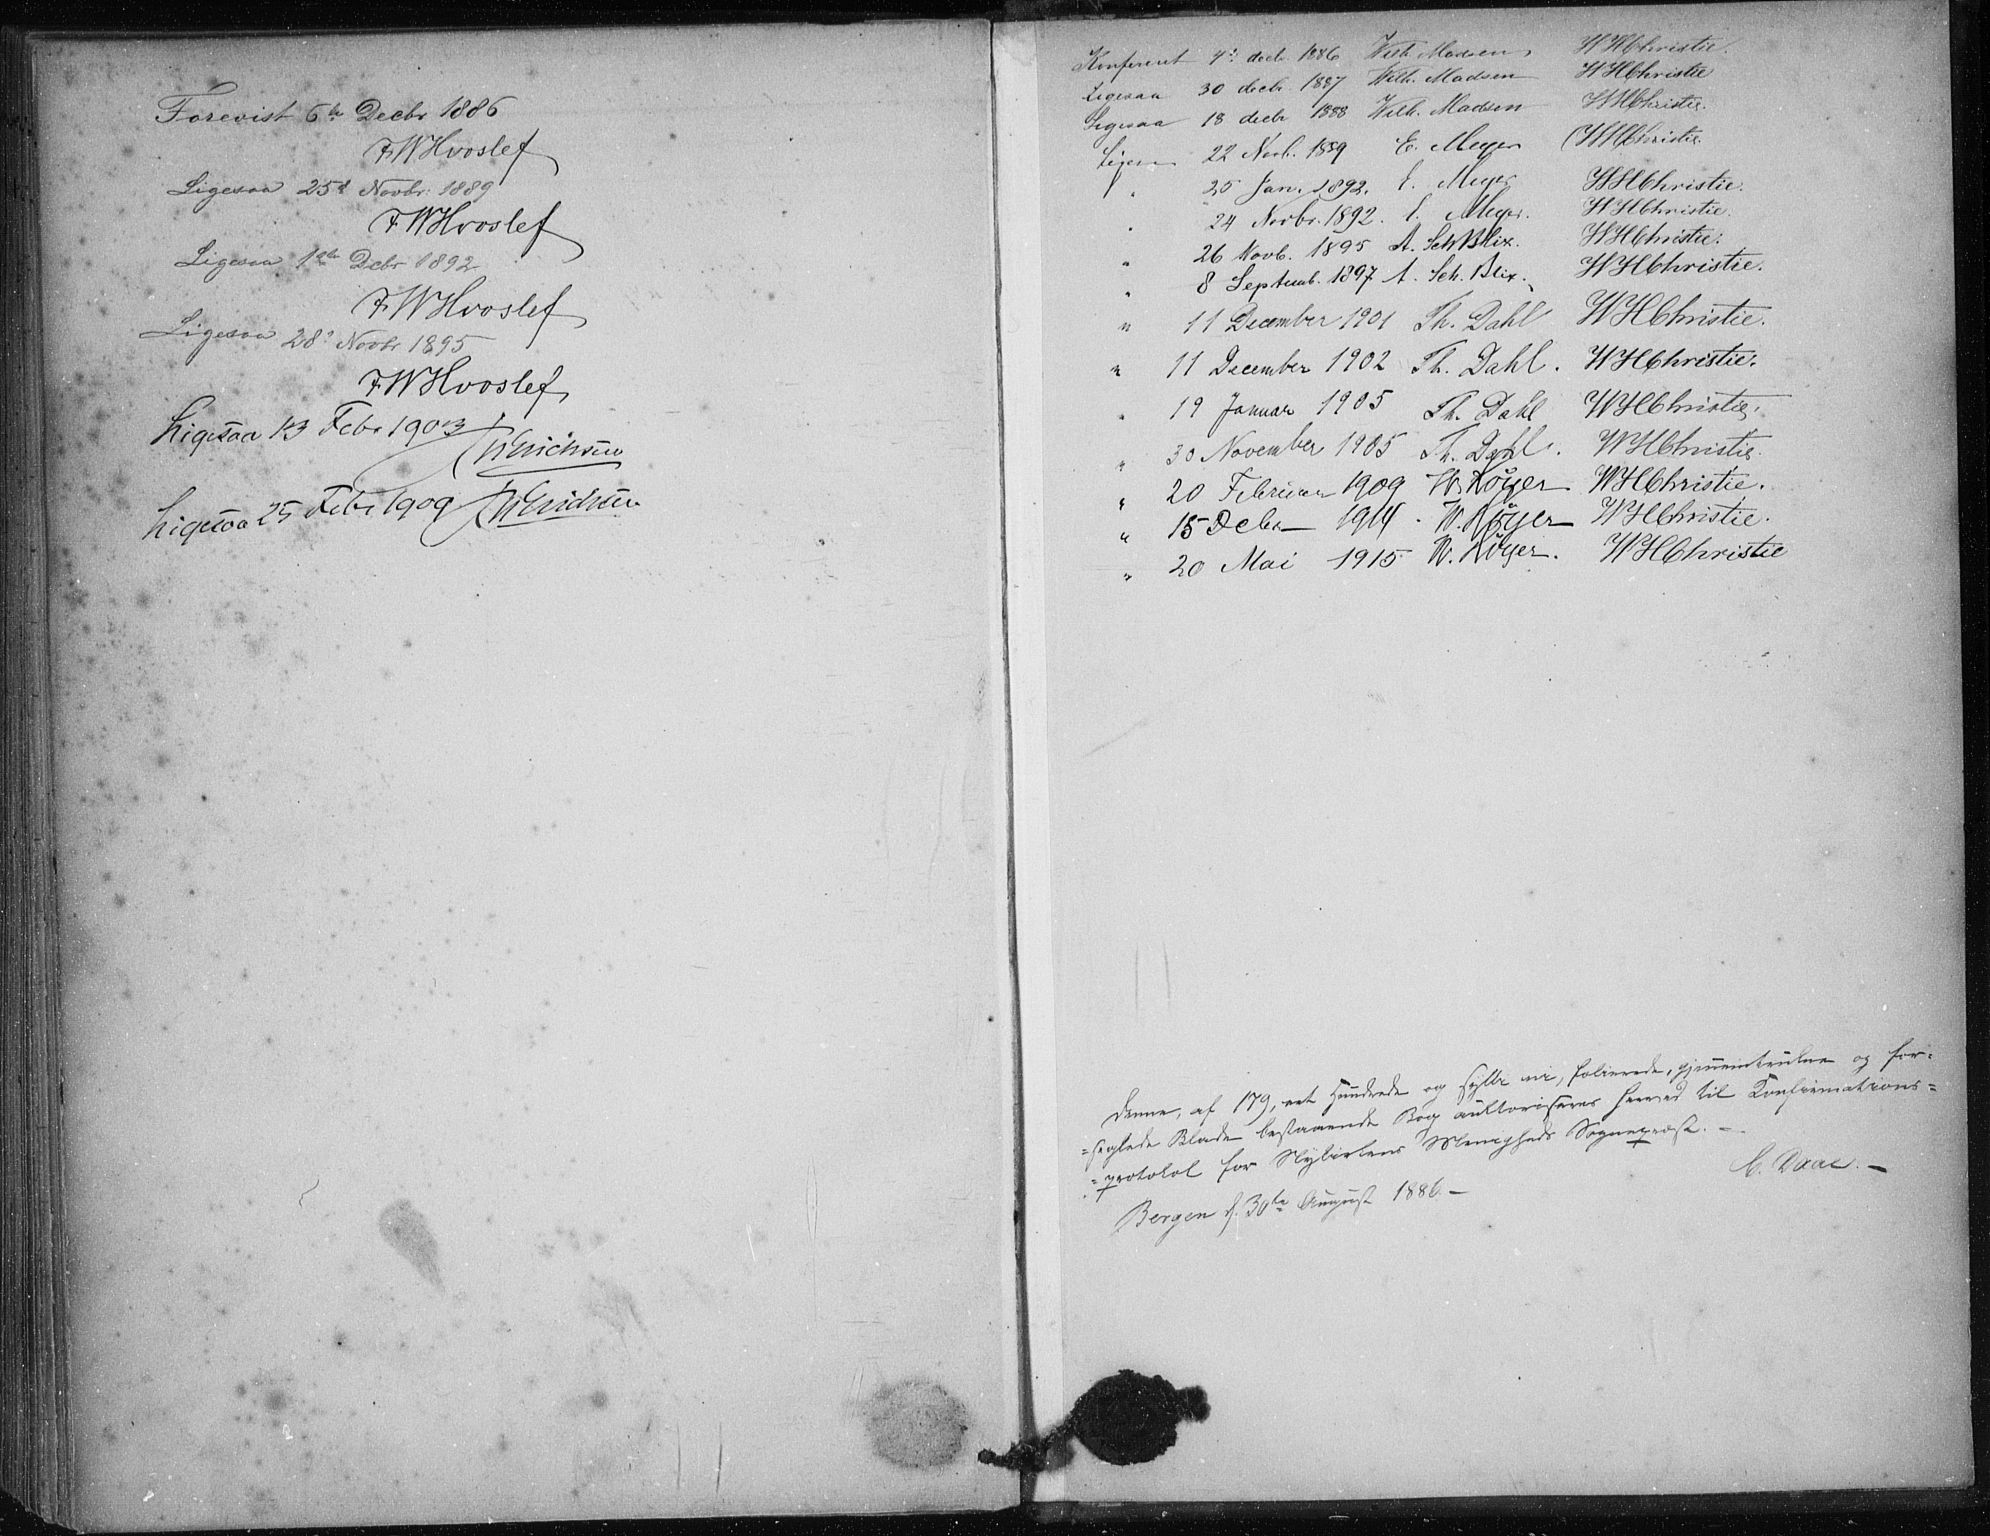 Forevist 6te Decbr 1886
FWHvoslef
Ligesaa 25d Novbr: 1889
FWHvoslef
Ligesaa 1ste Debr 1892
FWHvoslef
Ligesaa 28d Novbr 1895
FWHvoslef
Ligesaa 13 Febr 1903
Erichsen
Ligesaa 25 Febr 1909 Erichsen
Konfereret 4de decbr. 1886 Wilh Madsen, WHChristie.
Ligesaa 30 decbr. 1887 Wilh. Madsen WHChristie
Ligesaa 18 decbr 1888 Wilh. Madsen WHChristie.
Ligesaa 22 Novb. 1889 E. Meyer WHChristie.
" 25 Jan. 1892. E. Meyer WHChristie.
" 24 Novbr. 1892. E. Meyer. WHChristie.
" 26 Novb. 1895 A. Sch Blix. WHChristie.
" 8 Septemb. 1897 A. Sch. Blix. WHChristie.
" 11 December 1901 Th. Dahl WHChristie.
" 11 December 1902 Th. Dahl. WHChristie.
" 19 Januar 1905 Th. Dahl WHChristie.
" 30 November 1905 Th. Dahl. WHChristie.
" 20 Februar 1909 W. Køyer WHChristie.
" 15 Debr 1914. W. Køyer WHChristie.
" 20 Mai 1915 W. Køyer. WHChristie
Denne, af 179, et Hundrede og sytti ni, folierede, gjennemtrukne og for-
=seglede Blade bestaaende Bog auktoriseres herved til Konfirmations=
=protokol for Nykirkens Menigheds Sognepræst. –
C. Daae. –
Bergen d. 30te August 1886. –